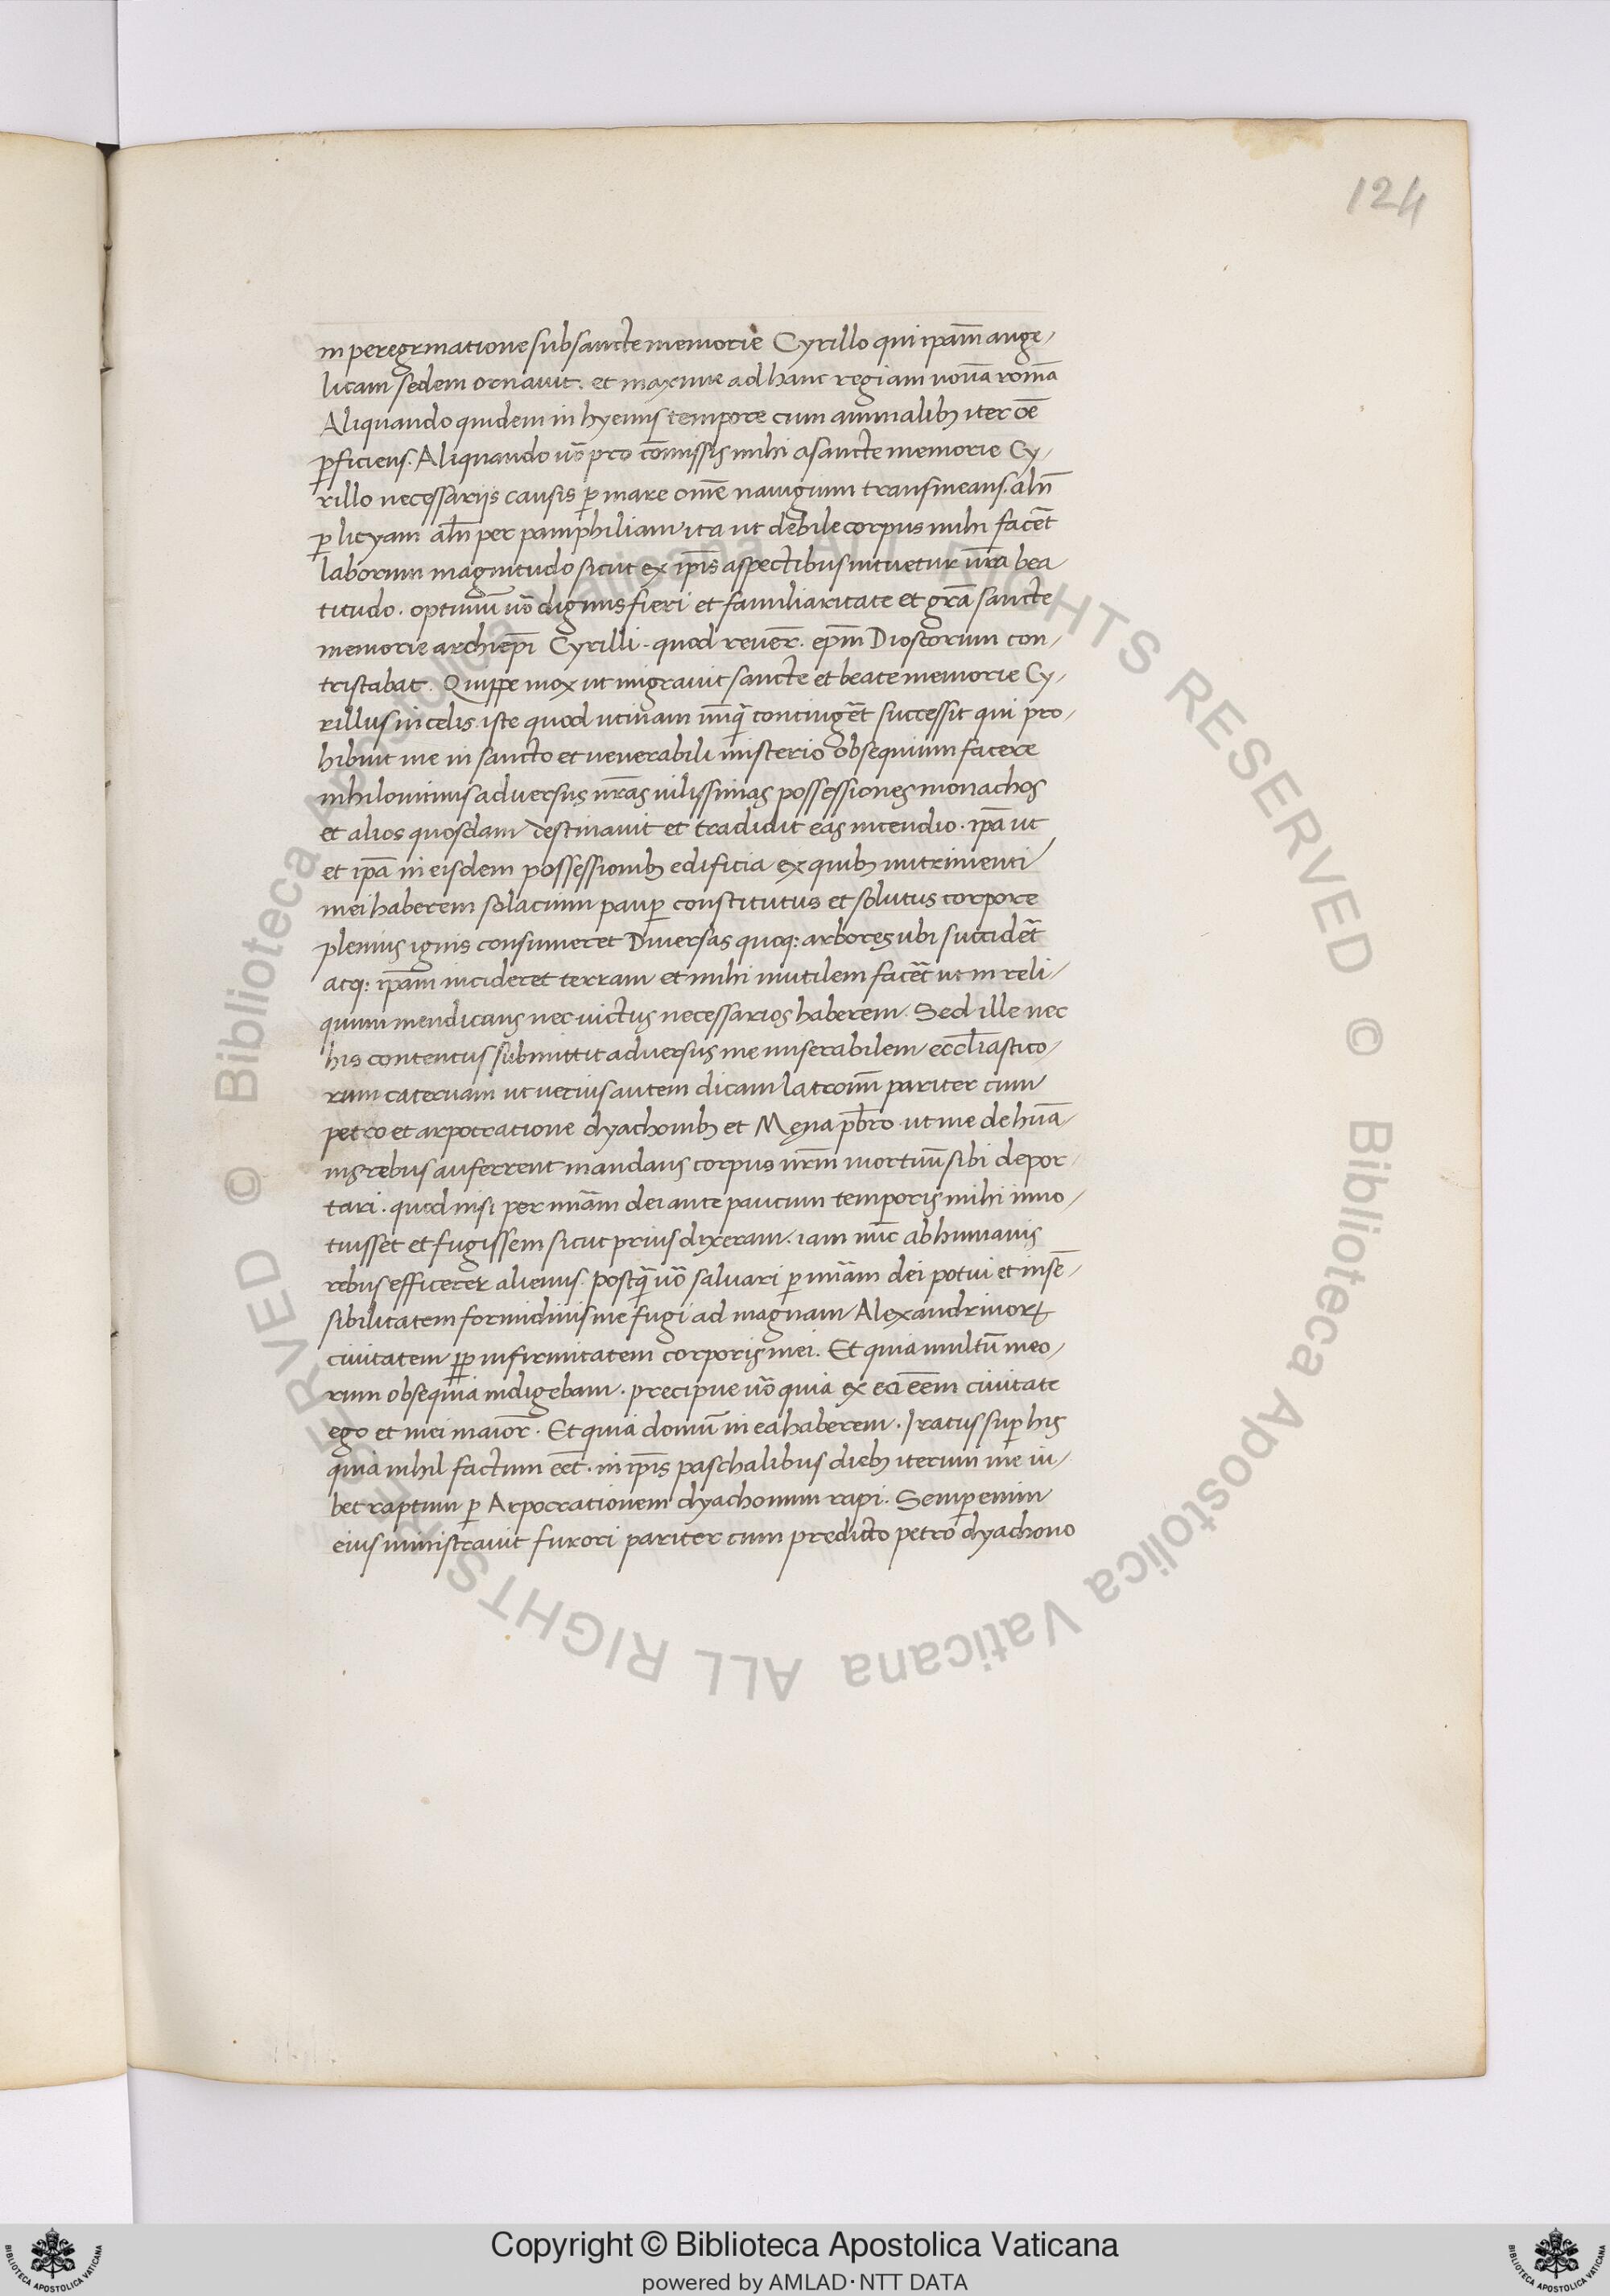 124
in peregrinatione sub sancte memorie Cyrillo qui ipam̄ ange-
licam sedem ornavit. et maxime ad hanc regiam novā romā
Aliquando quidem in hyemis tempore cum animalibꝫ iter oē
ꝑficiens. Aliquando uō pro cōmissis mihi a sancte memorie Cy-
rillo necessarijs causis ꝑ mare omē navigium transmeans. aln̄
ꝑ licyam aln̄ per pamphiliam ita ut debile corpus mihi facēt
laborum magnitudo sicut ex ip̄is aspectibus intuetur ūra bea-
titudo. optimū uō dignus fieri et familiaritate et gr̄a sancte
memorie archiep̄i Cyrilli. quod rever̄. ep̄m Dioscorum con-
tristabat. Quippe mox ut migravit sancte et beate memorie Cy-
rillus in celis. iste quod utinam nūq̄ contingēt successit qui pro-
hibuit me in sancto et venerabili misterio obsequium facere
nihilominus adversus nr̄as vilissimas possessiones monachos
et alios quosdam destinavit et tradidit eas incendio. ip̄a ut
et ip̄a in eisdem possessionibꝫ edificia ex quibꝫ nutrimenti
mei haberem solacium pauꝑ constitutus et solutus corpore
plenius ignis consumeret Diversas quoq: arbores ubi succidēt
atq: ip̄am incideret terram et mihi inutilem facēt ut in reli-
quum mendicans nec victus necessarios haberem. Sed ille nec
his contentus submittit adversus me miserabilem eccl̄iastico-
rum catervam ut verius autem dicam latronū pariter cum
petro et arpocratione dyachonibꝫ et Męna pb̄ro. ut me de hūa-
nis rebus auferrent mandans corpus nr̄m mortuū sibi depor-
tari. quod nisi per miām dei ante paucum temporis mihi inno-
tuisset et fugissem sicut prius dixeram. iam nūc ab humanis
rebus efficerer alienus. postq̄ uō salvari ꝑ miām dei potui et insē-
sibilitatem formidinis me fugi ad magnam Alexandrinoꝝ
civitatem ꝓp infirmitatem corporis mei. Et quia multū meo-
rum obsequia indigebam. precipue uō quia ex ea eēm civitate
ego et mei maior̄. Et quia domū in ea haberem. Iratus suꝑ his
quia nihil factum eēt. in ip̄is paschalibus diebꝫ iterum me iu-
bet raptum ꝑ Arpocrationem dyachonum rapi. Semꝑ enim
eius ministravit furori pariter cum predicto petro dyachono
© Biblioteca Apostolica Vaticana ALL RIGHTS RESERVED
© Biblioteca Apostolica Vaticana ALL RIGHTS RESERVED
Copyright © Biblioteca Apostolica Vaticana
powered by AMLAD·NTT DATA
BIBLIOTECA APOSTOLICA VATICANA
BIBLIOTECA APOSTOLICA VATICANA